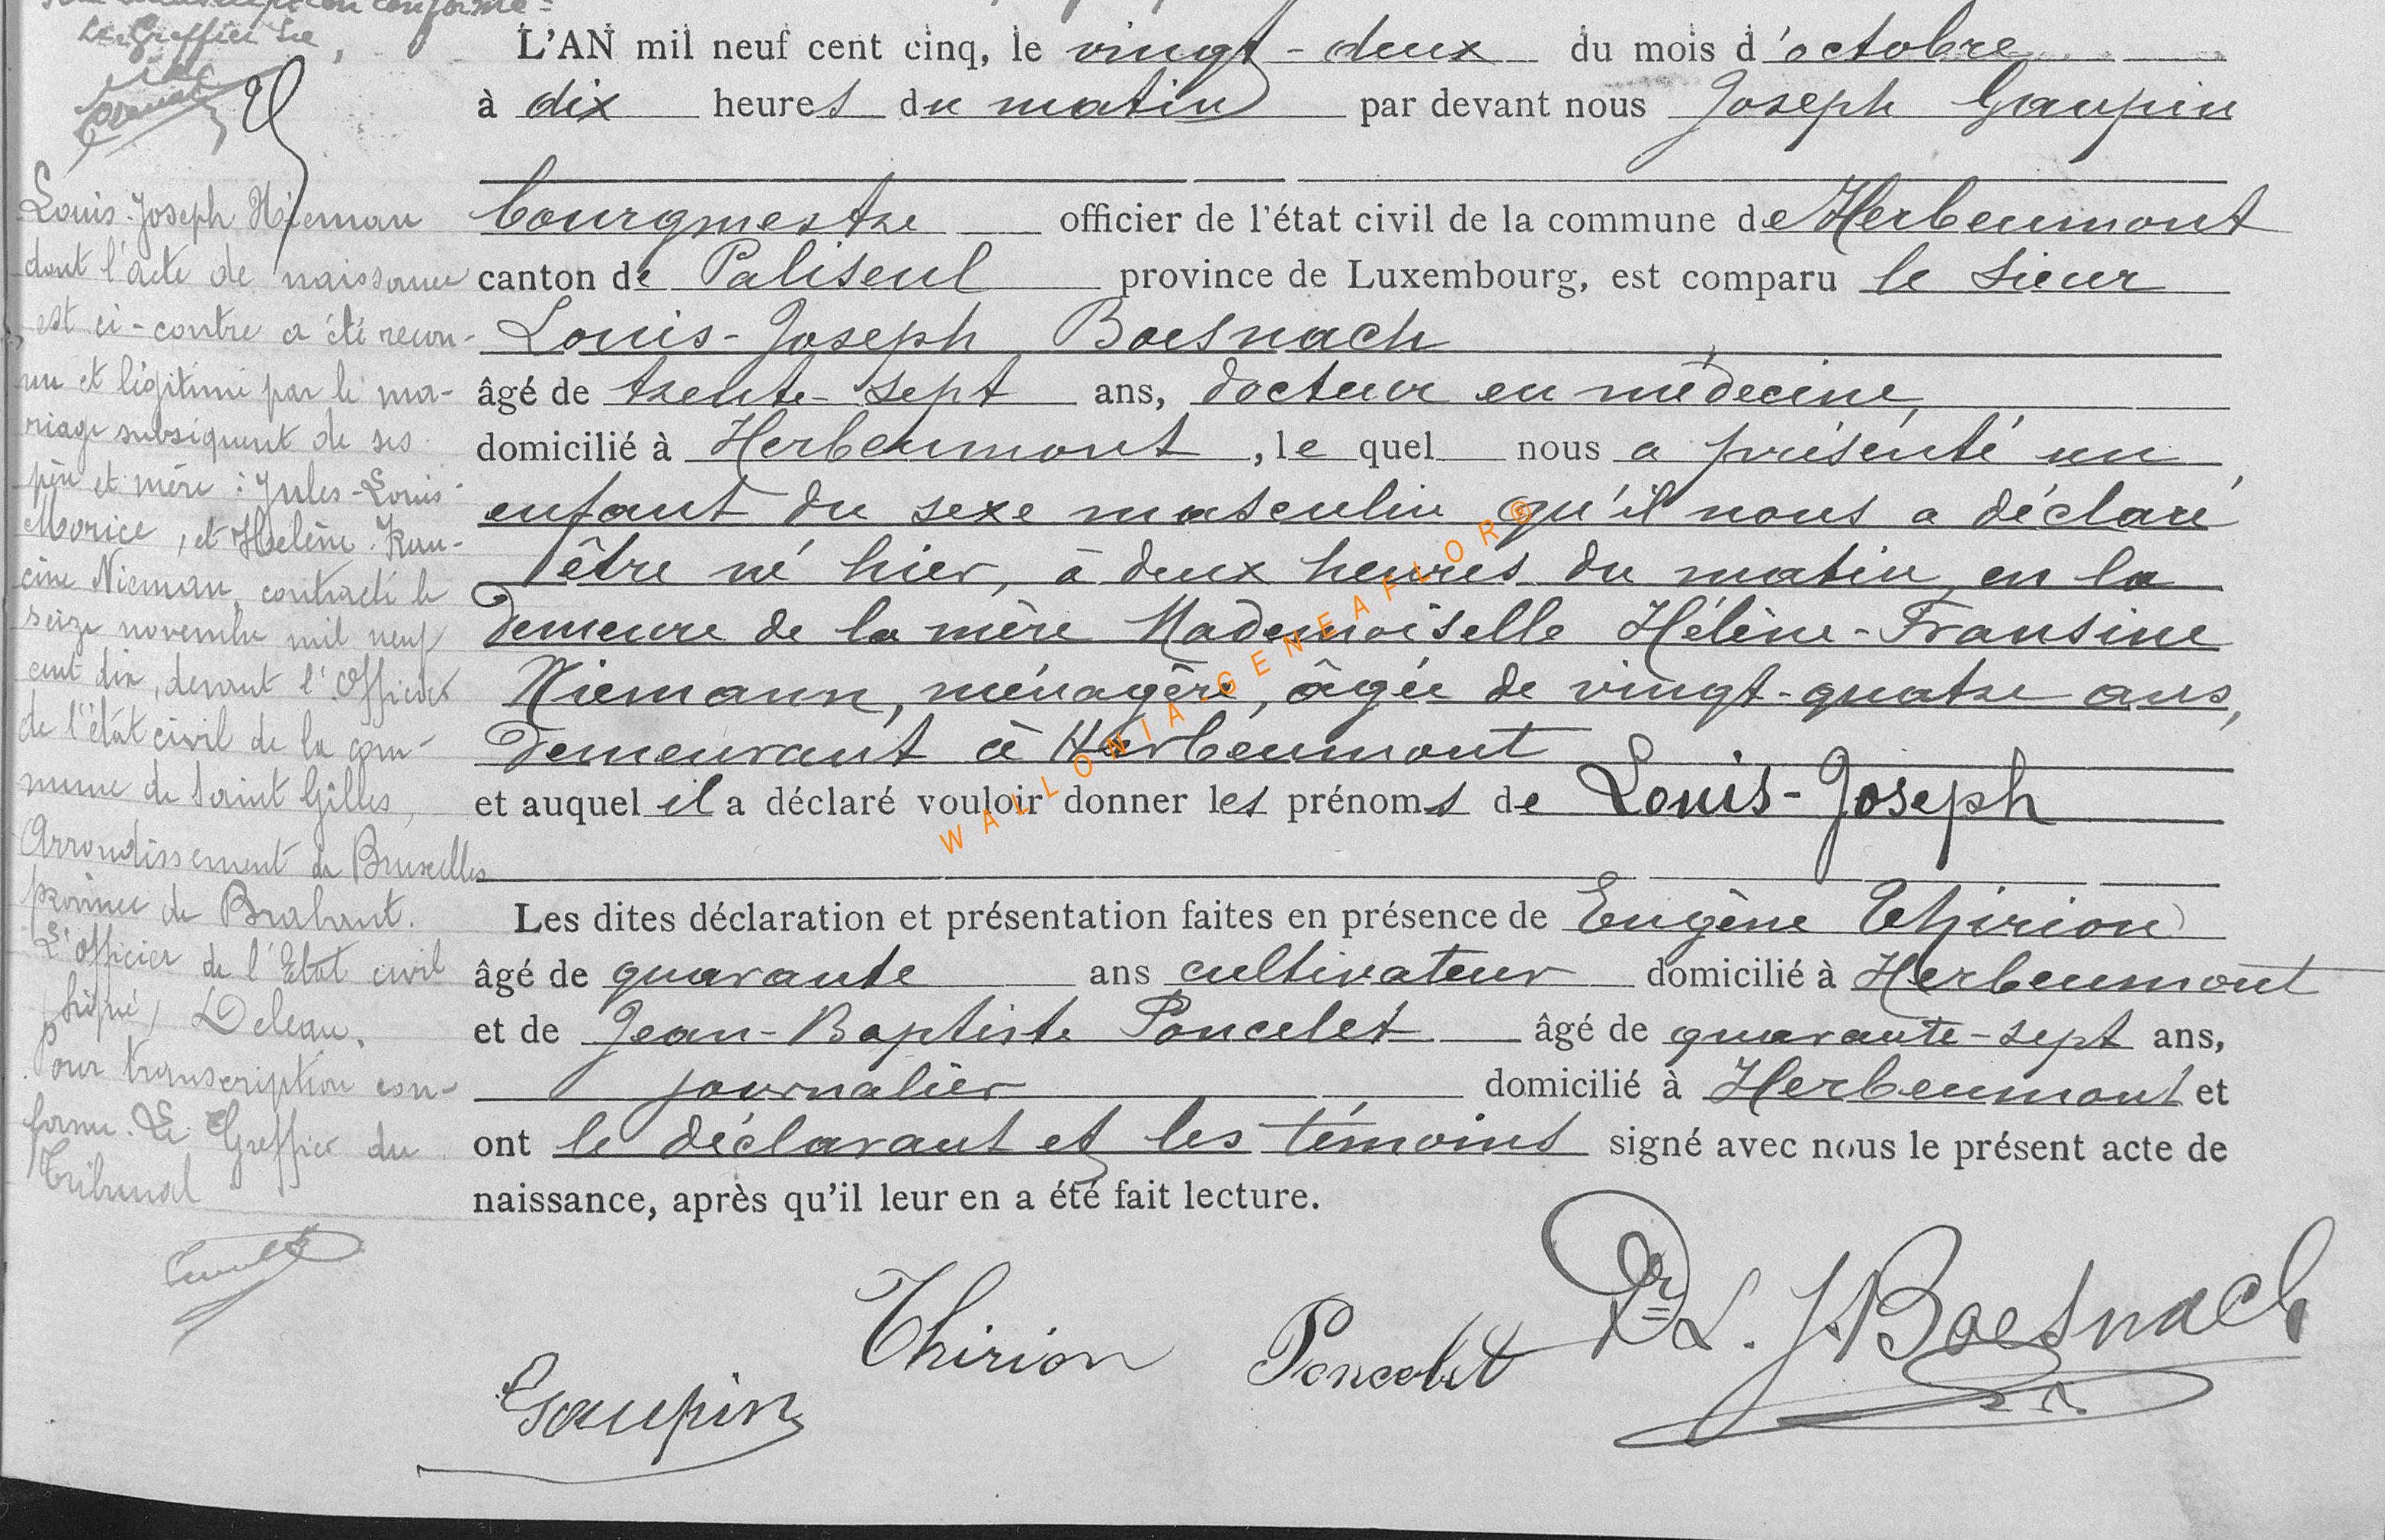 conforme =
Le Greffier
L'AN mil neuf cent cinq, le vingt-deux du mois d'octobre
à dix heures du matin par devant nous Joseph Gaupin
bourgmestre officier de l'état civil de la commune de Herbeumont
canton de Paliseul province de Luxembourg, est comparu le sieur
Louis-Joseph Boesnach
âgé de trente-sept ans, docteur en médecine,
domicilié à Herbeumont, le quel nous a présenté un
enfant du sexe masculin qu'il nous a déclaré
être né hier, à deux heures du matin, en la
demeure de la mère Mademoiselle Hélène-Fransine
Niemann, ménagère, âgée de vingt-quatre ans,
demeurant à Herbeumont
et auquel il a déclaré vouloir donner les prénoms de Louis-Joseph
Les dites déclaration et présentation faites en présence de Eugène Thirion
âgé de quarante ans cultivateur domicilié à Herbeumont
et de Jean-Baptiste Poncelet âgé de quarante-sept ans,
journalier domicilié à Herbeumont et
ont le déclarant et les témoins signé avec nous le présent acte de
naissance, après qu'il leur en a été fait lecture.
Thirion Poncelet Dr L. J. Boesnach
Gaupin
Louis-Joseph Nieman
dont l'acte de naissance
est ci-contre a été recon-
nu et légitimé par le ma-
riage subséquent de ses
père et mère : Jules-Louis-
Morice, et Helène-Fran-
cine Nieman, contracté le
seize novembre mil neuf
cent dix, devant l'Officier
de l'état civil de la com-
mune de Saint Gilles,
Arrondissement de Bruxelles
province de Brabant.
L'officier de l'Etat civil
(signé) Deleau.
Pour transcription con-
forme. Le Greffier du
Tribunal
WALLONIA GENEAFLOR®